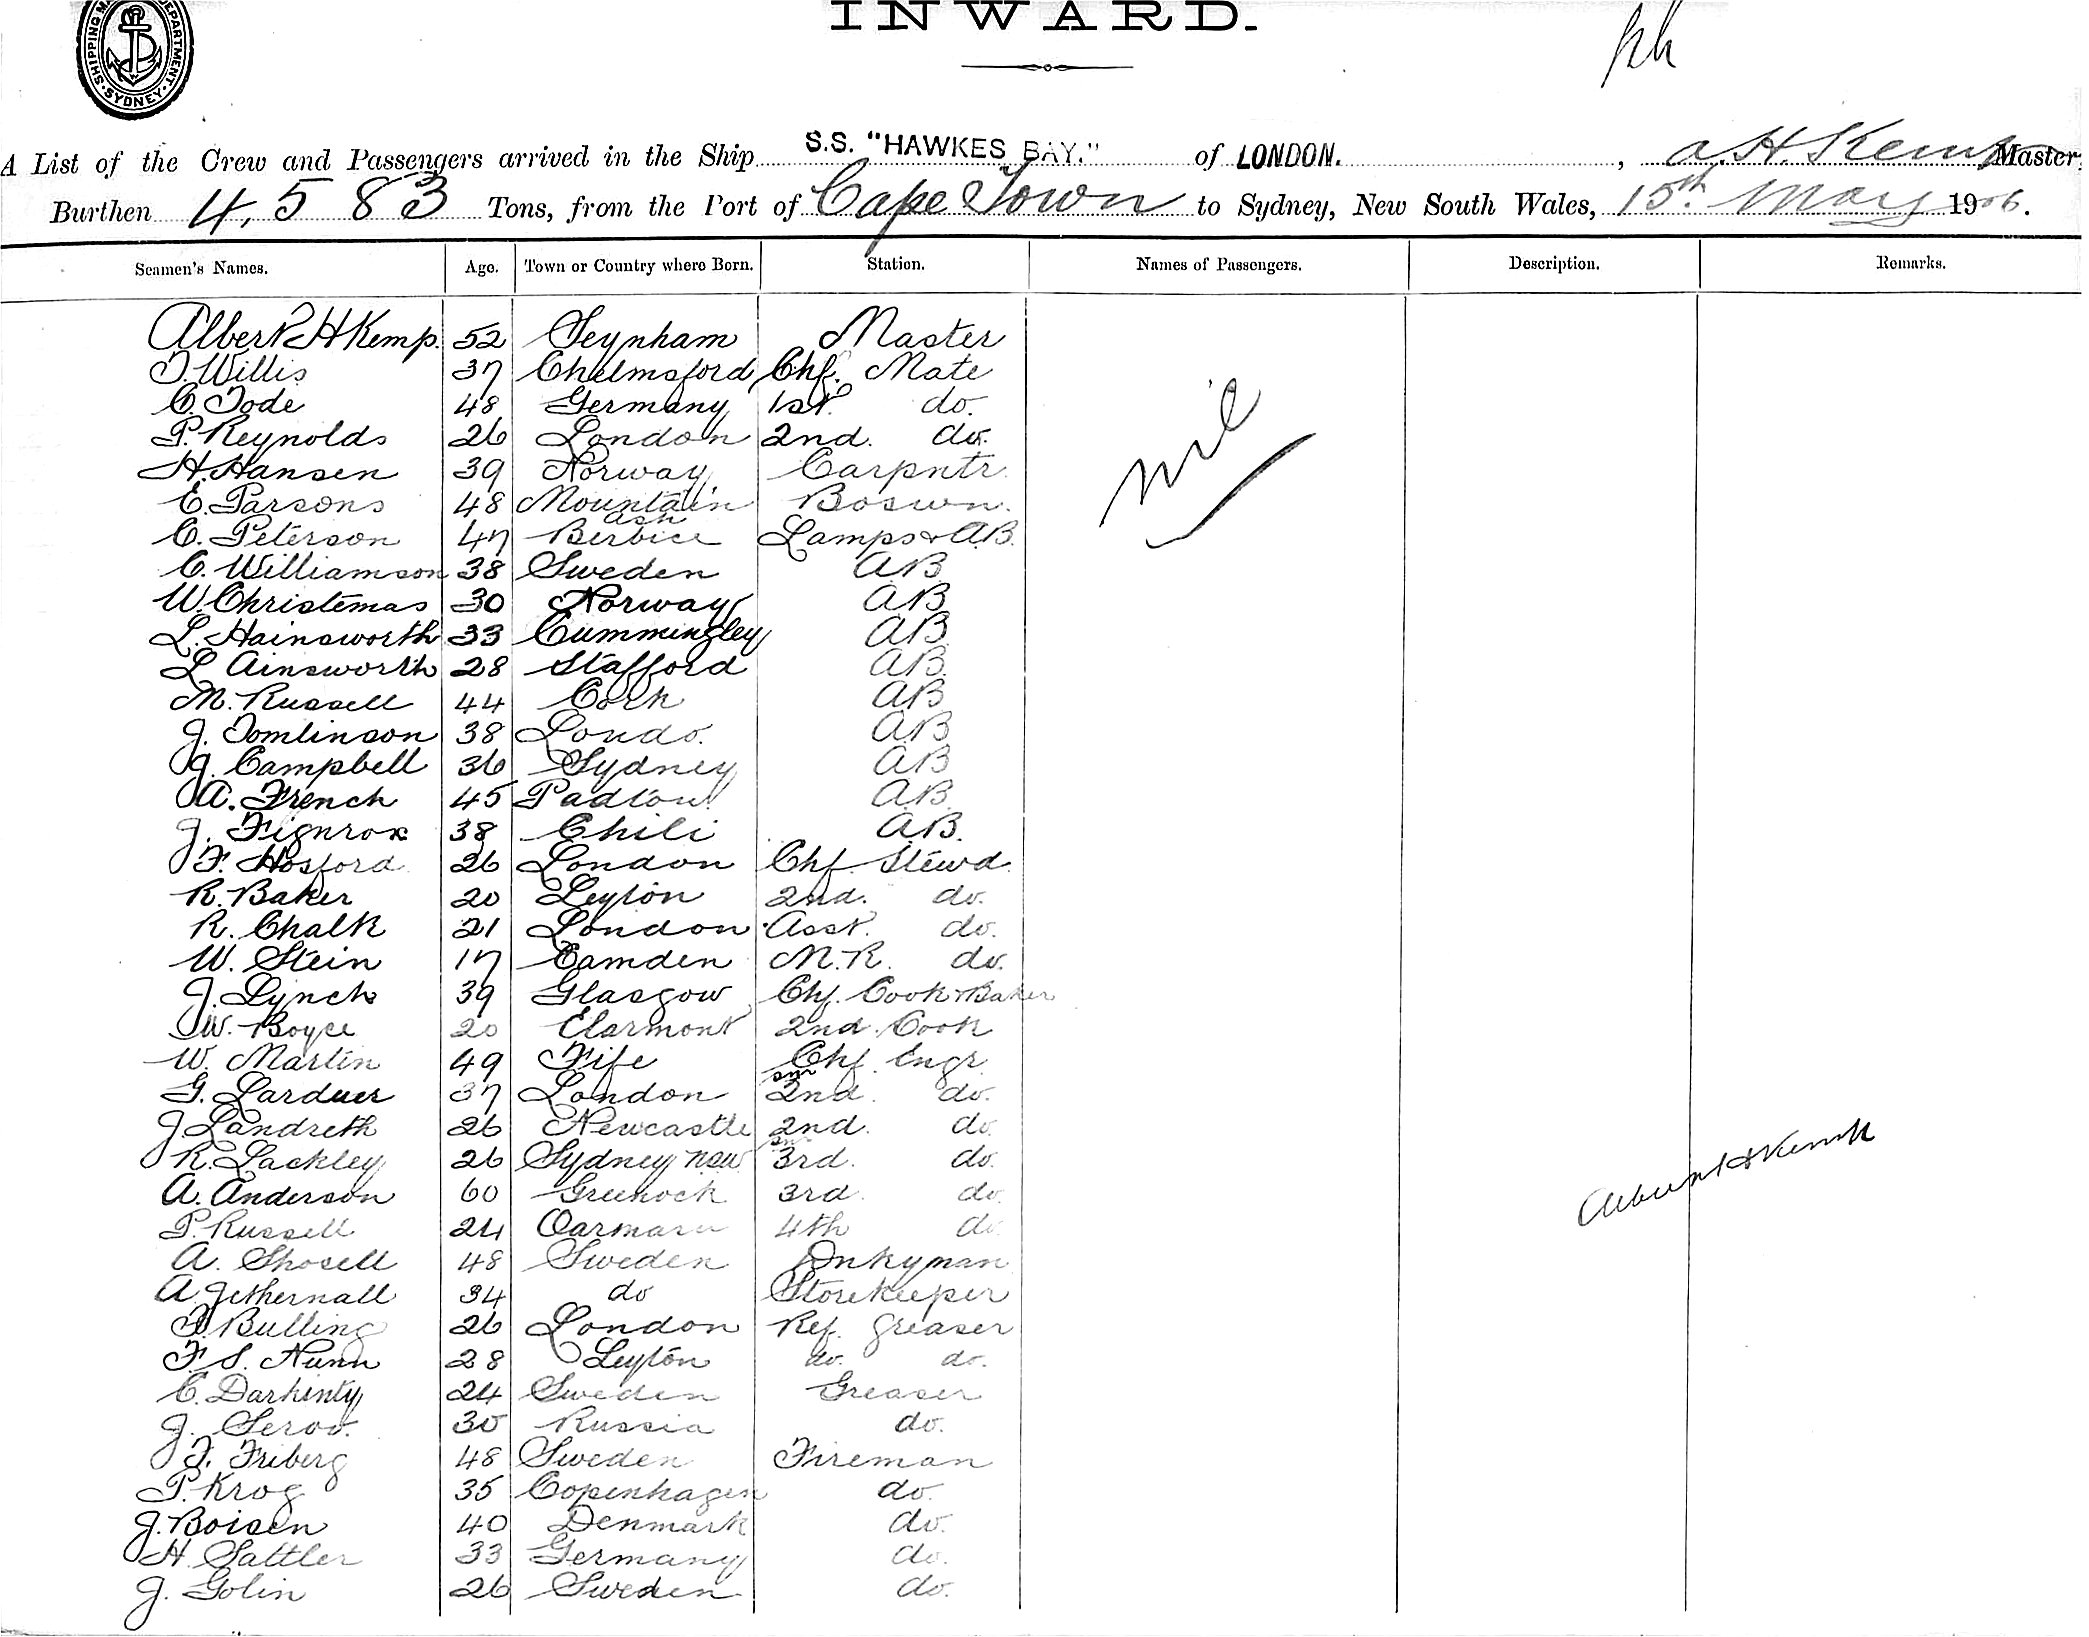 INWARD.
SHIPPING MA DEPARTMENT SYDNEY
A List of the Crew and Passengers arrived in the Ship S.S. "HAWKES BAY." of LONDON. , A. H. Kemp Master,
Burthen 4,583 Tons, from the Port of Cape Town to Sydney, New South Wales, 15th May 1906.
Seamen's Names. Age. Town or Country where Born. Station. Names of Passengers. Description. Remarks.
Albert H Kemp. 52 Teynham Master
T. Willis 37 Chelmsford Chf. Mate
C. Tode 48 Germany 1st. do.
P. Reynolds 26 London 2nd. do.
nil
H. Hansen 39 Norway Carpntr.
E. Parsons 48 Mountain Ash Boswn.
C. Peterson 47 Berbice Lamps & A.B.
C. Williamson 38 Sweden A.B.
W. Christemas 30 Norway A.B
L. Hainsworth 33 Cummingley A.B
L Ainsworth 28 Stafford A.B.
M. Russell 44 Cork A.B
J. Tomlinson 38 Londo. A.B
J. Campbell 36 Sydney A.B
A. French 45 Padtow A.B.
J. Fignrox 38 Chili A.B.
F. Hosford 26 London Chf. Stewd.
R. Baker 20 Leyton 2nd. do.
R. Chalk 21 London Asst. do.
W. Stein 17 Camden M.R. do.
J. Lynch 39 Glasgow Chf. Cook & Baker
W. Boyce 20 Clarmont 2nd. Cook
W. Martin 49 Fife Chf. Engr.
G. Larduer 37 London Snr 2nd. do.
J Landreth 26 Newcastle 2nd. do
R. Lackley 26 Sydney NSW Snr 3rd. do.
A. Anderson 60 Greenock 3rd. do.
Albert H Kemp
P. Russell 24 Oarmaru 4th do
A. Shosell 48 Sweden Dnkyman
A Jethernall 34 do Storekeeper
F. Bulling 26 London Ref. Greaser
F. S. Nunn 28 Leyton do. do.
C. Darkinty 24 Sweden Greaser
J. Seroo. 30 Russia do.
F. Friberg 48 Sweden Fireman
P. Krog 35 Copenhagen do.
J. Boisen 40 Denmark do.
H Sattler 33 Germany do.
J. Golin 26 Sweden do.